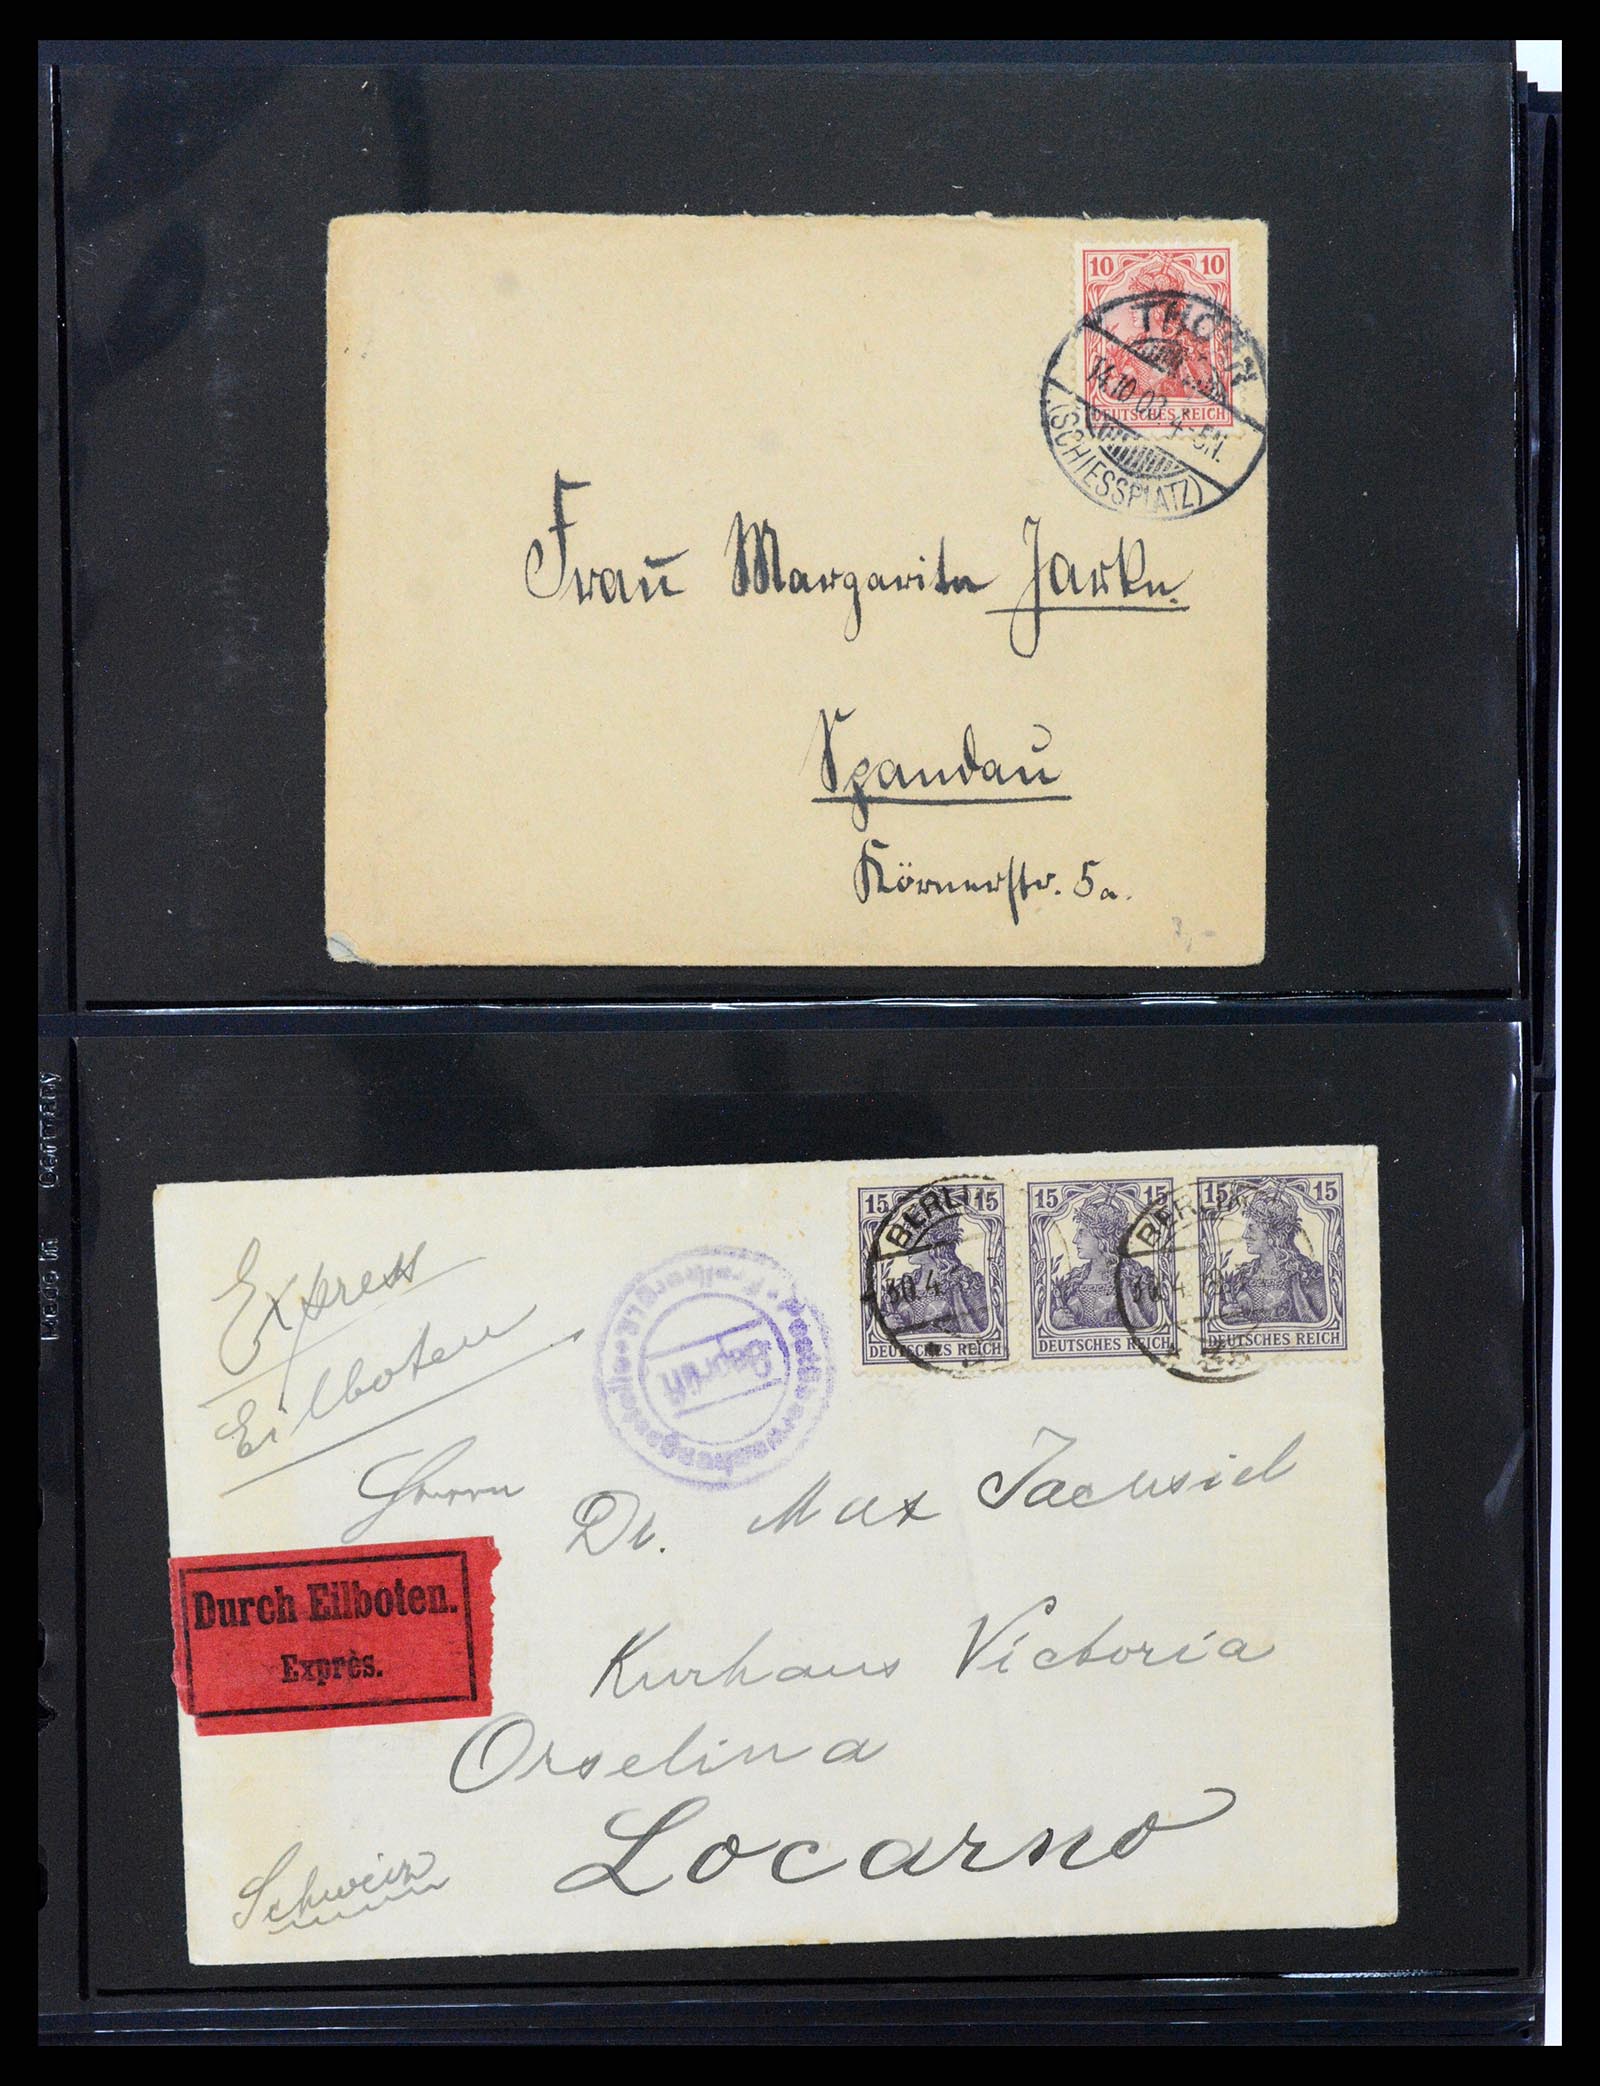 10 10
DEUTSCHES REICH
THORN
14.10.02. 4-5N.
(SCHIESSPLATZ)
Frau Margarita Jarke.
Spandau
Körnerstr. 5a.
Made in Germany
15 15
DEUTSCHES REICH
15 15
DEUTSCHES REICH
15 15
DEUTSCHES REICH
BERLIN
30.4
BERLIN
30.4
Postüberwachungsstelle
Geprüft
Express
Eilboten
Herrn
Dr. Max
Durch Eilboten.
Exprès.
Kurhaus Victoria
Orselina
Locarno
Schweiz